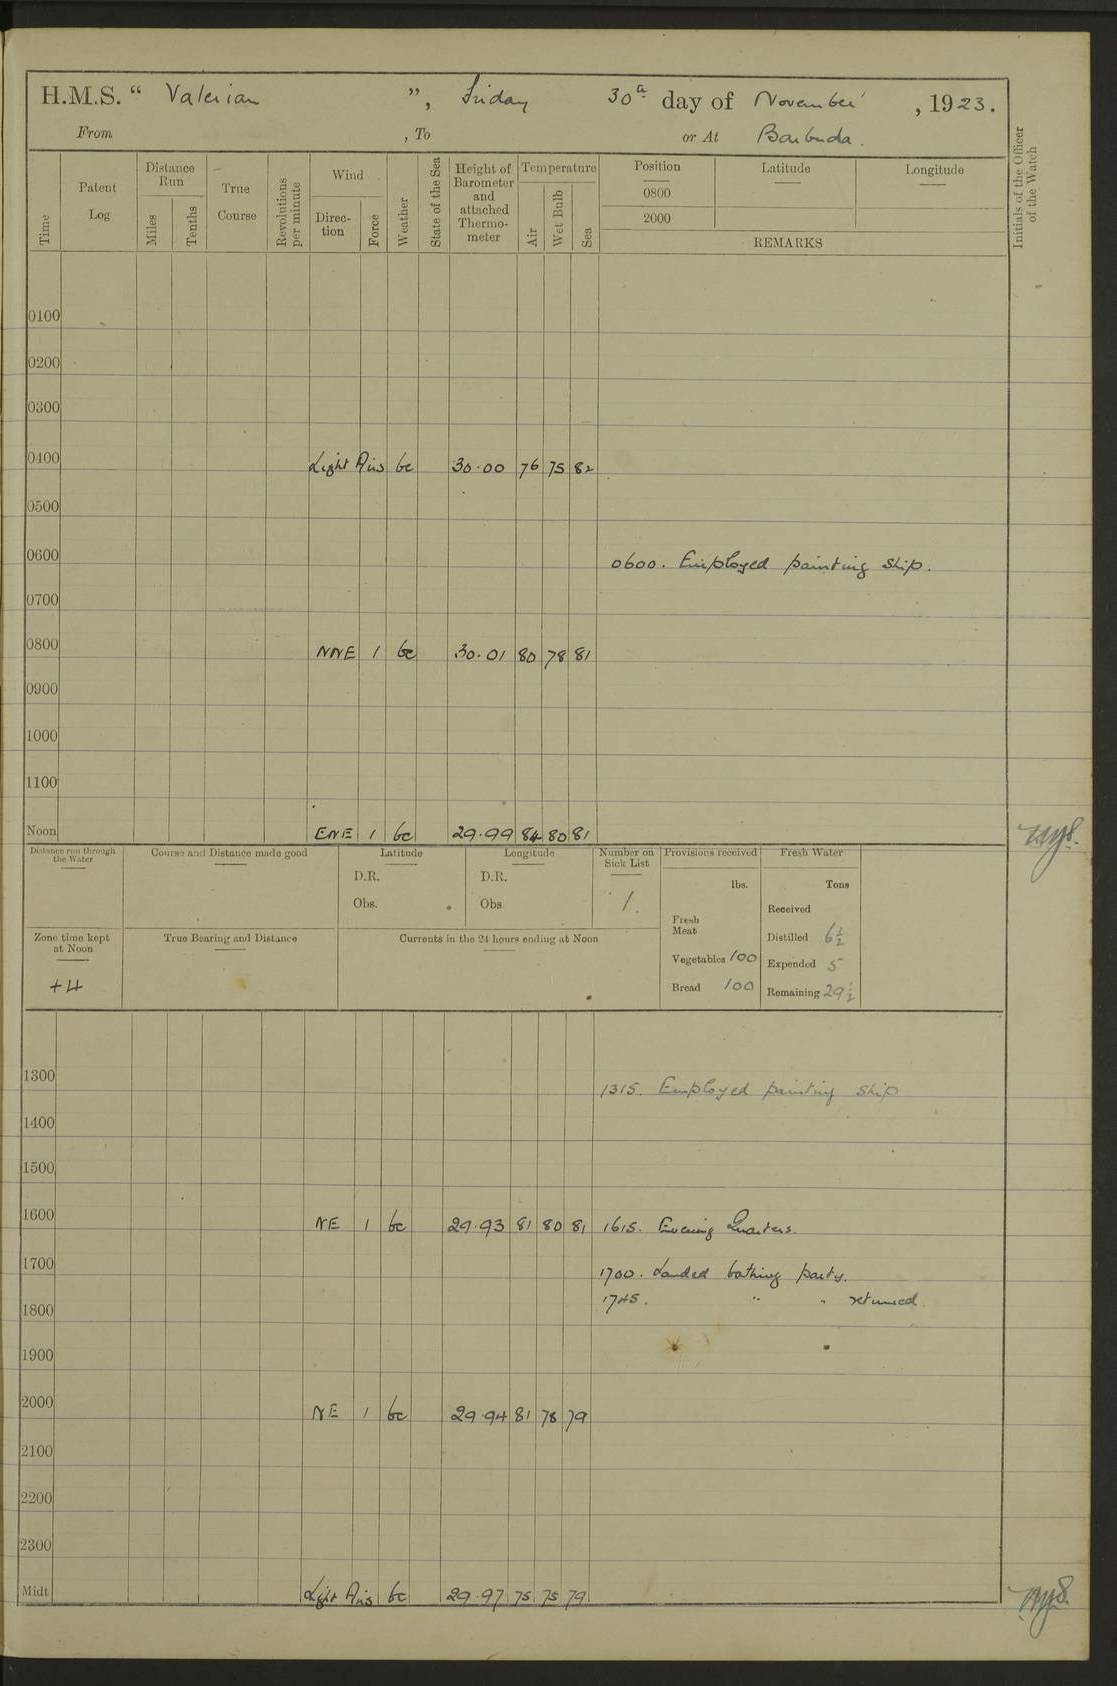 H.M.S. “ Valerian ”, Friday 30th day of November, 1923.
From , To or At Barbuda.
Time
Patent Log
Distance Run
Miles
Tenths
True Course
Revolutions per minute
Wind
Direc-tion
Force
Weather
State of the Sea
Height of Barometer and attached Thermo-meter
Temperature
Air
Wet Bulb
Sea
Position
Latitude
Longitude
0800
2000
REMARKS
Initials of the Officer of the Watch
0100
0200
0300
0400 Light Airs bc 30.00 76 75 82
0500
0600 0600. Employed painting ship.
0700
0800 NNE 1 bc 30.01 80 78 81
0900
1000
1100
Noon ENE 1 bc 29.99 84 80 81
Distance run through the Water
Course and Distance made good
Latitude
D.R.
Obs.
Longitude
D.R.
Obs
Number on Sick List
1.
Provisions received
lbs.
Fresh Meat
Vegetables 100
Bread 100
Fresh Water
Tons
Received
Distilled 6½
Expended 5
Remaining 29½
Zone time kept at Noon
+4
True Bearing and Distance
Currents in the 24 hours ending at Noon
1300 1315. Employed painting ship
1400
1500
1600 NE 1 bc 29.93 81 80 81 1615. Evening Quarters.
1700 1700. Landed bathing party.
1745. " " returned.
1800
1900
2000 NE 1 bc 29.94 81 78 79
2100
2200
2300
Midt Light Airs bc 29.97 75 75 79